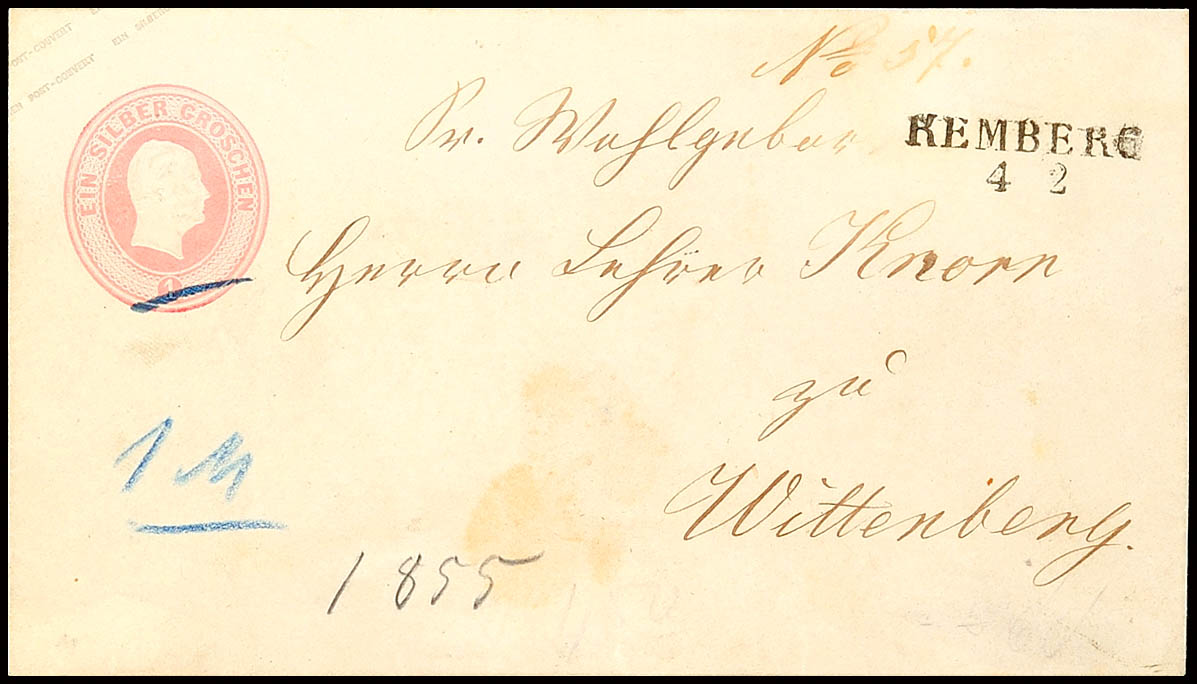 POST-COUVERT EIN SILBERG
EN POST-COUVERT
EIN SILBER GROSCHEN
1
No 57.
Sr. Wohlgebor
KEMBERG
4 2
Herrn Lehrer Knorr
zu
Wittenberg.
1855